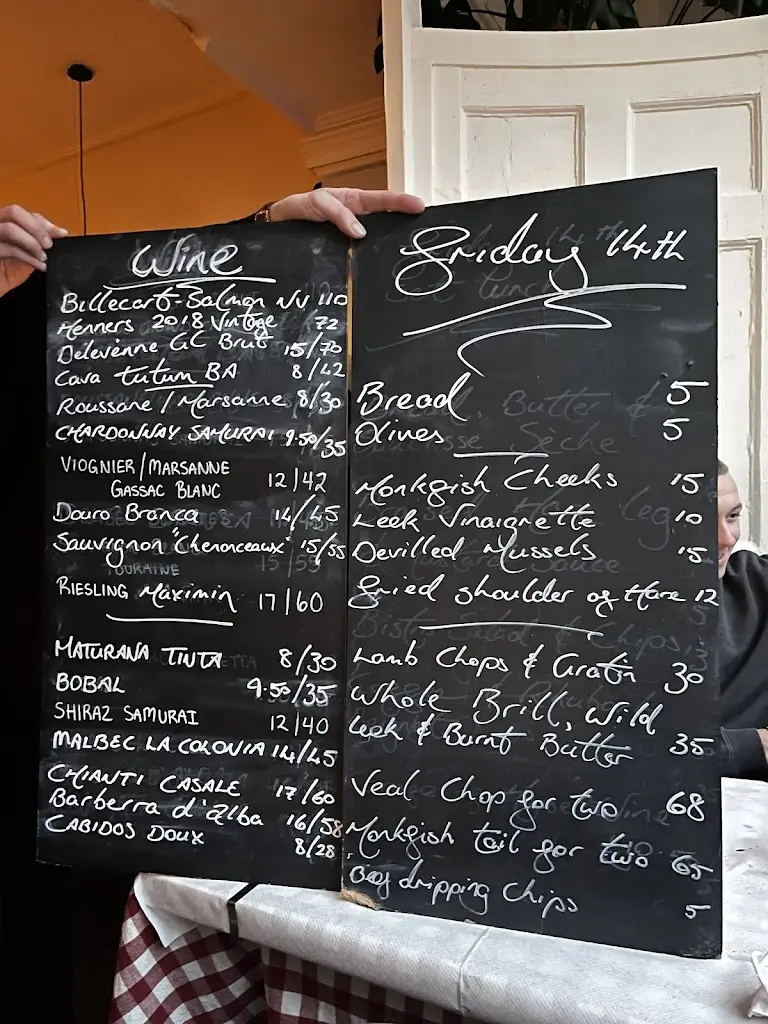 Wine
Billecart-Salmon NV 110
Henners 2018 Vintage 72
Delevenne GC Brut 15/70
Cava tutum BA 8/42
Roussane / Marsanne 8/30
CHARDONNAY SAMURAI 9.50/35
VIOGNIER/MARSANNE
GASSAC BLANC 12/42
Douro Branca 14/45
Sauvignon "Chenonceaux" 15/55
TOURAINE
RIESLING Maximin 17/60
MATURANA TINTA 8/30
BOBAL 9.50/35
SHIRAZ SAMURAI 12/40
MALBEC LA COLONIA 14/45
CHIANTI CASALE 17/60
Barberra d'alba 16/58
CABIDOS DOUX 8/28
Friday 14th
Bread 5
Olives 5
Monkfish Cheeks 15
Leek Vinaigrette 10
Devilled Mussels 15
Fried shoulder of Hare 12
Lamb Chops & Gratin 30
Whole Brill, Wild
Leek & Burnt Butter 35
Veal Chop for two 68
Monkfish tail for two 65
Beef dripping Chips 5